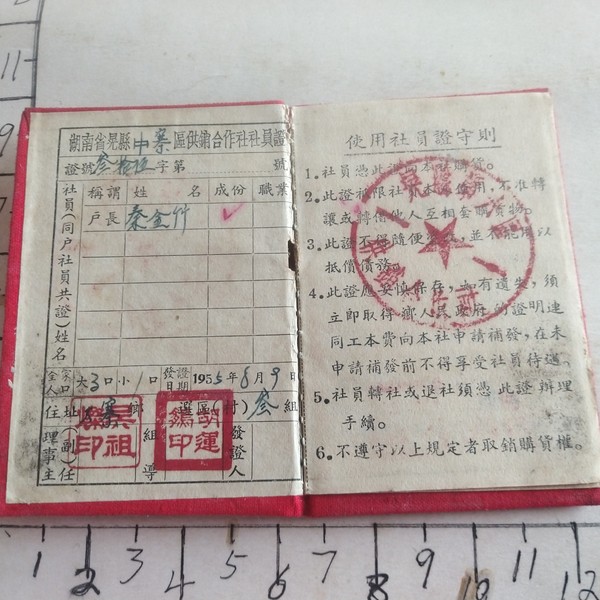 湖南省晃縣中寨區供銷合作社社員證
證號叁拾伍字第 號
社員(同戶社員共證)姓名
稱謂 姓 名 成份 職業
戶長 秦金竹
全家人口 大3口小1口 發證日期 1955年8月9日
住址 寨鄉 選區(村)叁組
理事(副)主任
組導
發證人
印祖
胡運
印
使用社員證守則
1. 社員憑此證向本社購貨。
2. 此證祇限社員本 使用,不准轉
讓或轉借他人互相套購貨物。
3. 此證不得隨便 ,並不能用以
抵償債務。
4. 此證應妥慎保存,如有遺失,須
立即取得鄉人民政府的證明連
同工本費向本社申請補發,在未
申請補發前不得享受社員待遇。
5. 社員轉社或退社須憑此證辦理
手續。
6. 不遵守以上規定者取銷購貨權。
11
10
9
8
1 2 3 4 5 6 7 8 9 10 11 12